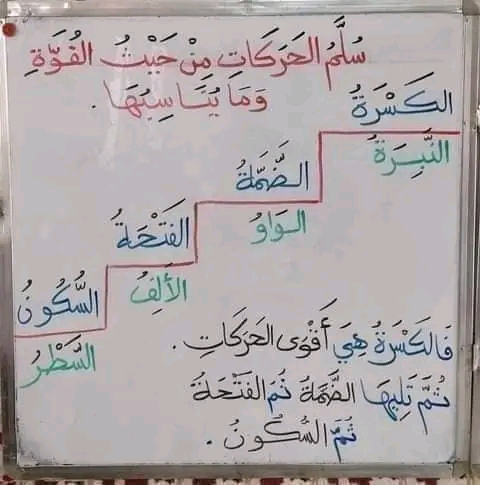 سُلَّمُ الحَرَكَاتِ مِنْ حَيْثُ القُوَّةِ
وَمَا يُنَاسِبُهَا .
الكَسْرَةُ
النَّبِرَةُ
الضَّمَّةُ
الوَاوُ
الفَتْحَةُ
الألِفُ
السُّكُونُ
السَّطْرُ
فَالكَسْرَةُ هِيَ أَقْوَى الحَرَكَاتِ .
ثُمَّ تَلِيهَا الضَّمَّةُ ثُمَّ الفَتْحَةُ
ثُمَّ السُّكُونُ .